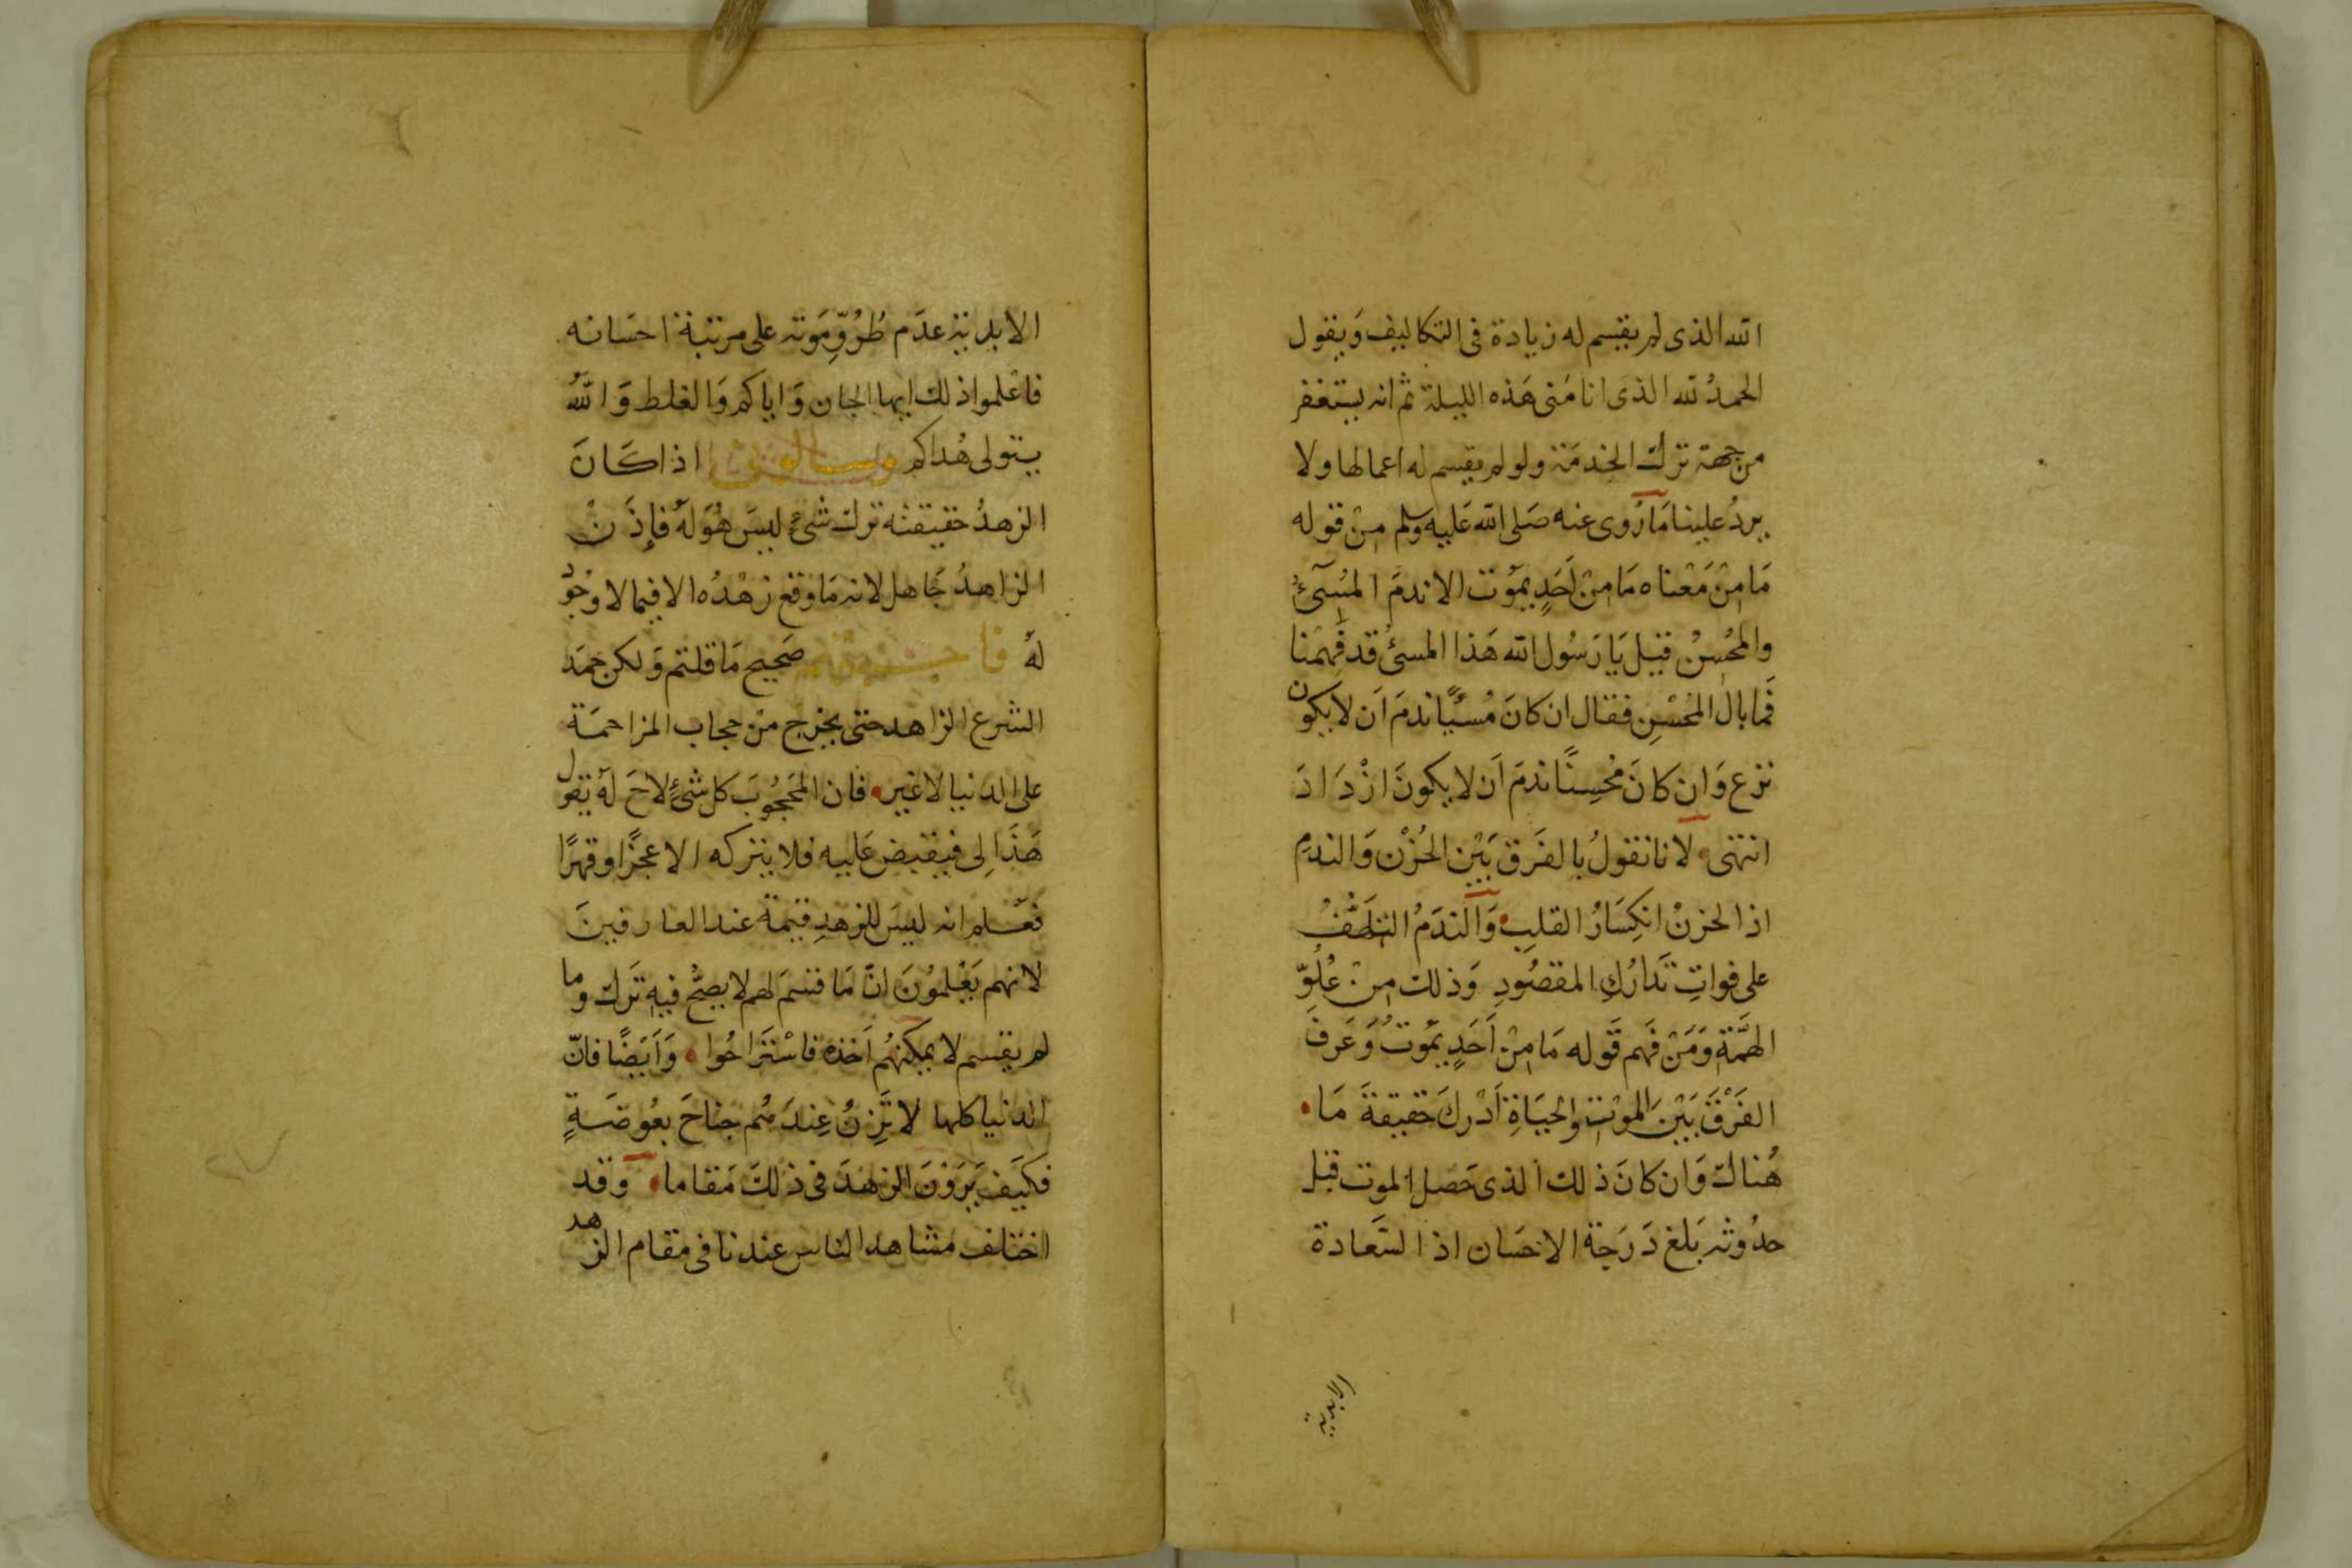 الله الذى لم يقسم له زيادة فى التكاليف وَيقول
الحمدُ لله الذى انا مَنى هَذه الليلة ثم انه يستغفر
من جهة ترك الخدمَة ولو لم يقسم له اعمالها ولا
يردُ علينا مَا رُوى عنه صَلى الله عَليه وسلم مِنْ قوله
مَا مِنْ مَعْناه مَا مِنْ اَحَدٍ يمَوت الا ندمَ المُسِىٓءُ
والمحُسِنُ قيل يَا رَسُول الله هَذا المسئُ قد فَهِمْنا
فَما بال المحُسْنِ فقال ان كانَ مُسئًا ندمَ اَن لا يكون
نزع وَان كانَ مُحسِنًا ندمَ اَن لا يكونَ ازْدَادَ
انتهى لانا نقولُ بالفَرق بَيْنَ الحُزْن وَالندمِ
اذ الحزنْ انكِسَارُ القلبِ وَالندَمُ التلَهُّفْ
على فواتِ تَدَارُكِ المقصُودِ وَذلك مِنْ عُلُوِّ
الهمَّةِ وَمَنْ فَهم قَوله مَا مِنْ اَحَدٍ يمَوتُ وَعَرفَ
الفَرْقَ بَيْنَ الموْتِ والحَيَاةِ اَدْرَكَ حَقيقةَ مَا
هُناكَ وَان كانَ ذلك الذى حَصل الموت قبل
حدُوثه بَلغ دَرَجة الاحسَان اذ السَّعادة
الابدية
الابدية عدَم طُرُوِّ مَوته على مرتبة احسَانه
فاعْلموا ذلك ايها الجان وَاياكم وَالغلط وَاللهُ
يتولى هُداكم اذا كَانَ
الزهدُ حقيقته ترك شىءٍ ليسَ هُوَ لهُ فاِذَنْ
الزاهدُ جَاهل لانه مَا وقعَ زهْدُه الا فيما لا وُجُودَ
لهُ فاجبتهم صَحيح مَا قلتم وَلكن حَمَد
الشرع الزاهد حتى يخرج منْ حجاب المزاحمَة
على الدنيا لا غير فان المحَجُوبَ كل شىءٍ لاحَ لهُ يقول
هَذَا لِى فيقبض عَليه فلا يتركه الا عجزًا وقهرًا
فعَلم انه ليسَ للزهدِ قيمة عند العارفينَ
لانهم يَعْلمُونَ انَّ مَا قسمَ لهم لا يصحُّ فيهِ تَرك وما
لم يقسم لا يمكنهُم اَخذه فاسْتَراحُوا وَاَيْضًا فانّ
الدنيا كلها لا تَزِنُ عِندَهُم جناحَ بعُوضَةٍ
فكيَف يَرَوْنَ الزهدَ فى ذلكَ مَقاما وقد
اختلف مشاهد الناس عندنا فى مقام الزهد